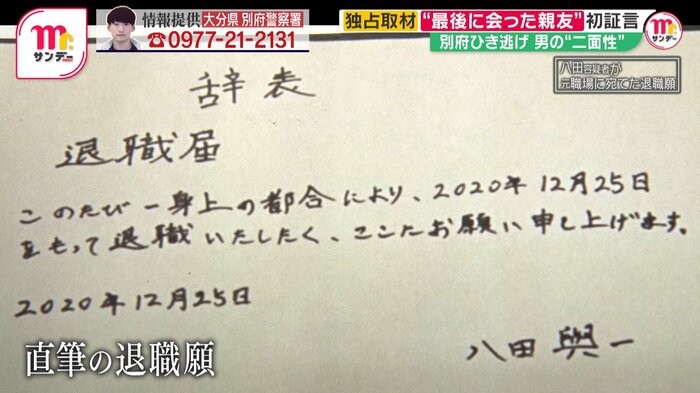 Mr.サンデー
情報提供 大分県 別府警察署
0977-21-2131
独占取材 “最後に会った親友”初証言
別府ひき逃げ 男の“二面性”
八田容疑者が
元職場に宛てた退職願
辞表
退職届
このたび一身上の都合により、2020年12月25日
をもって退職いたしたく、ここにお願い申し上げます。
2020年12月25日
八田與一
直筆の退職願